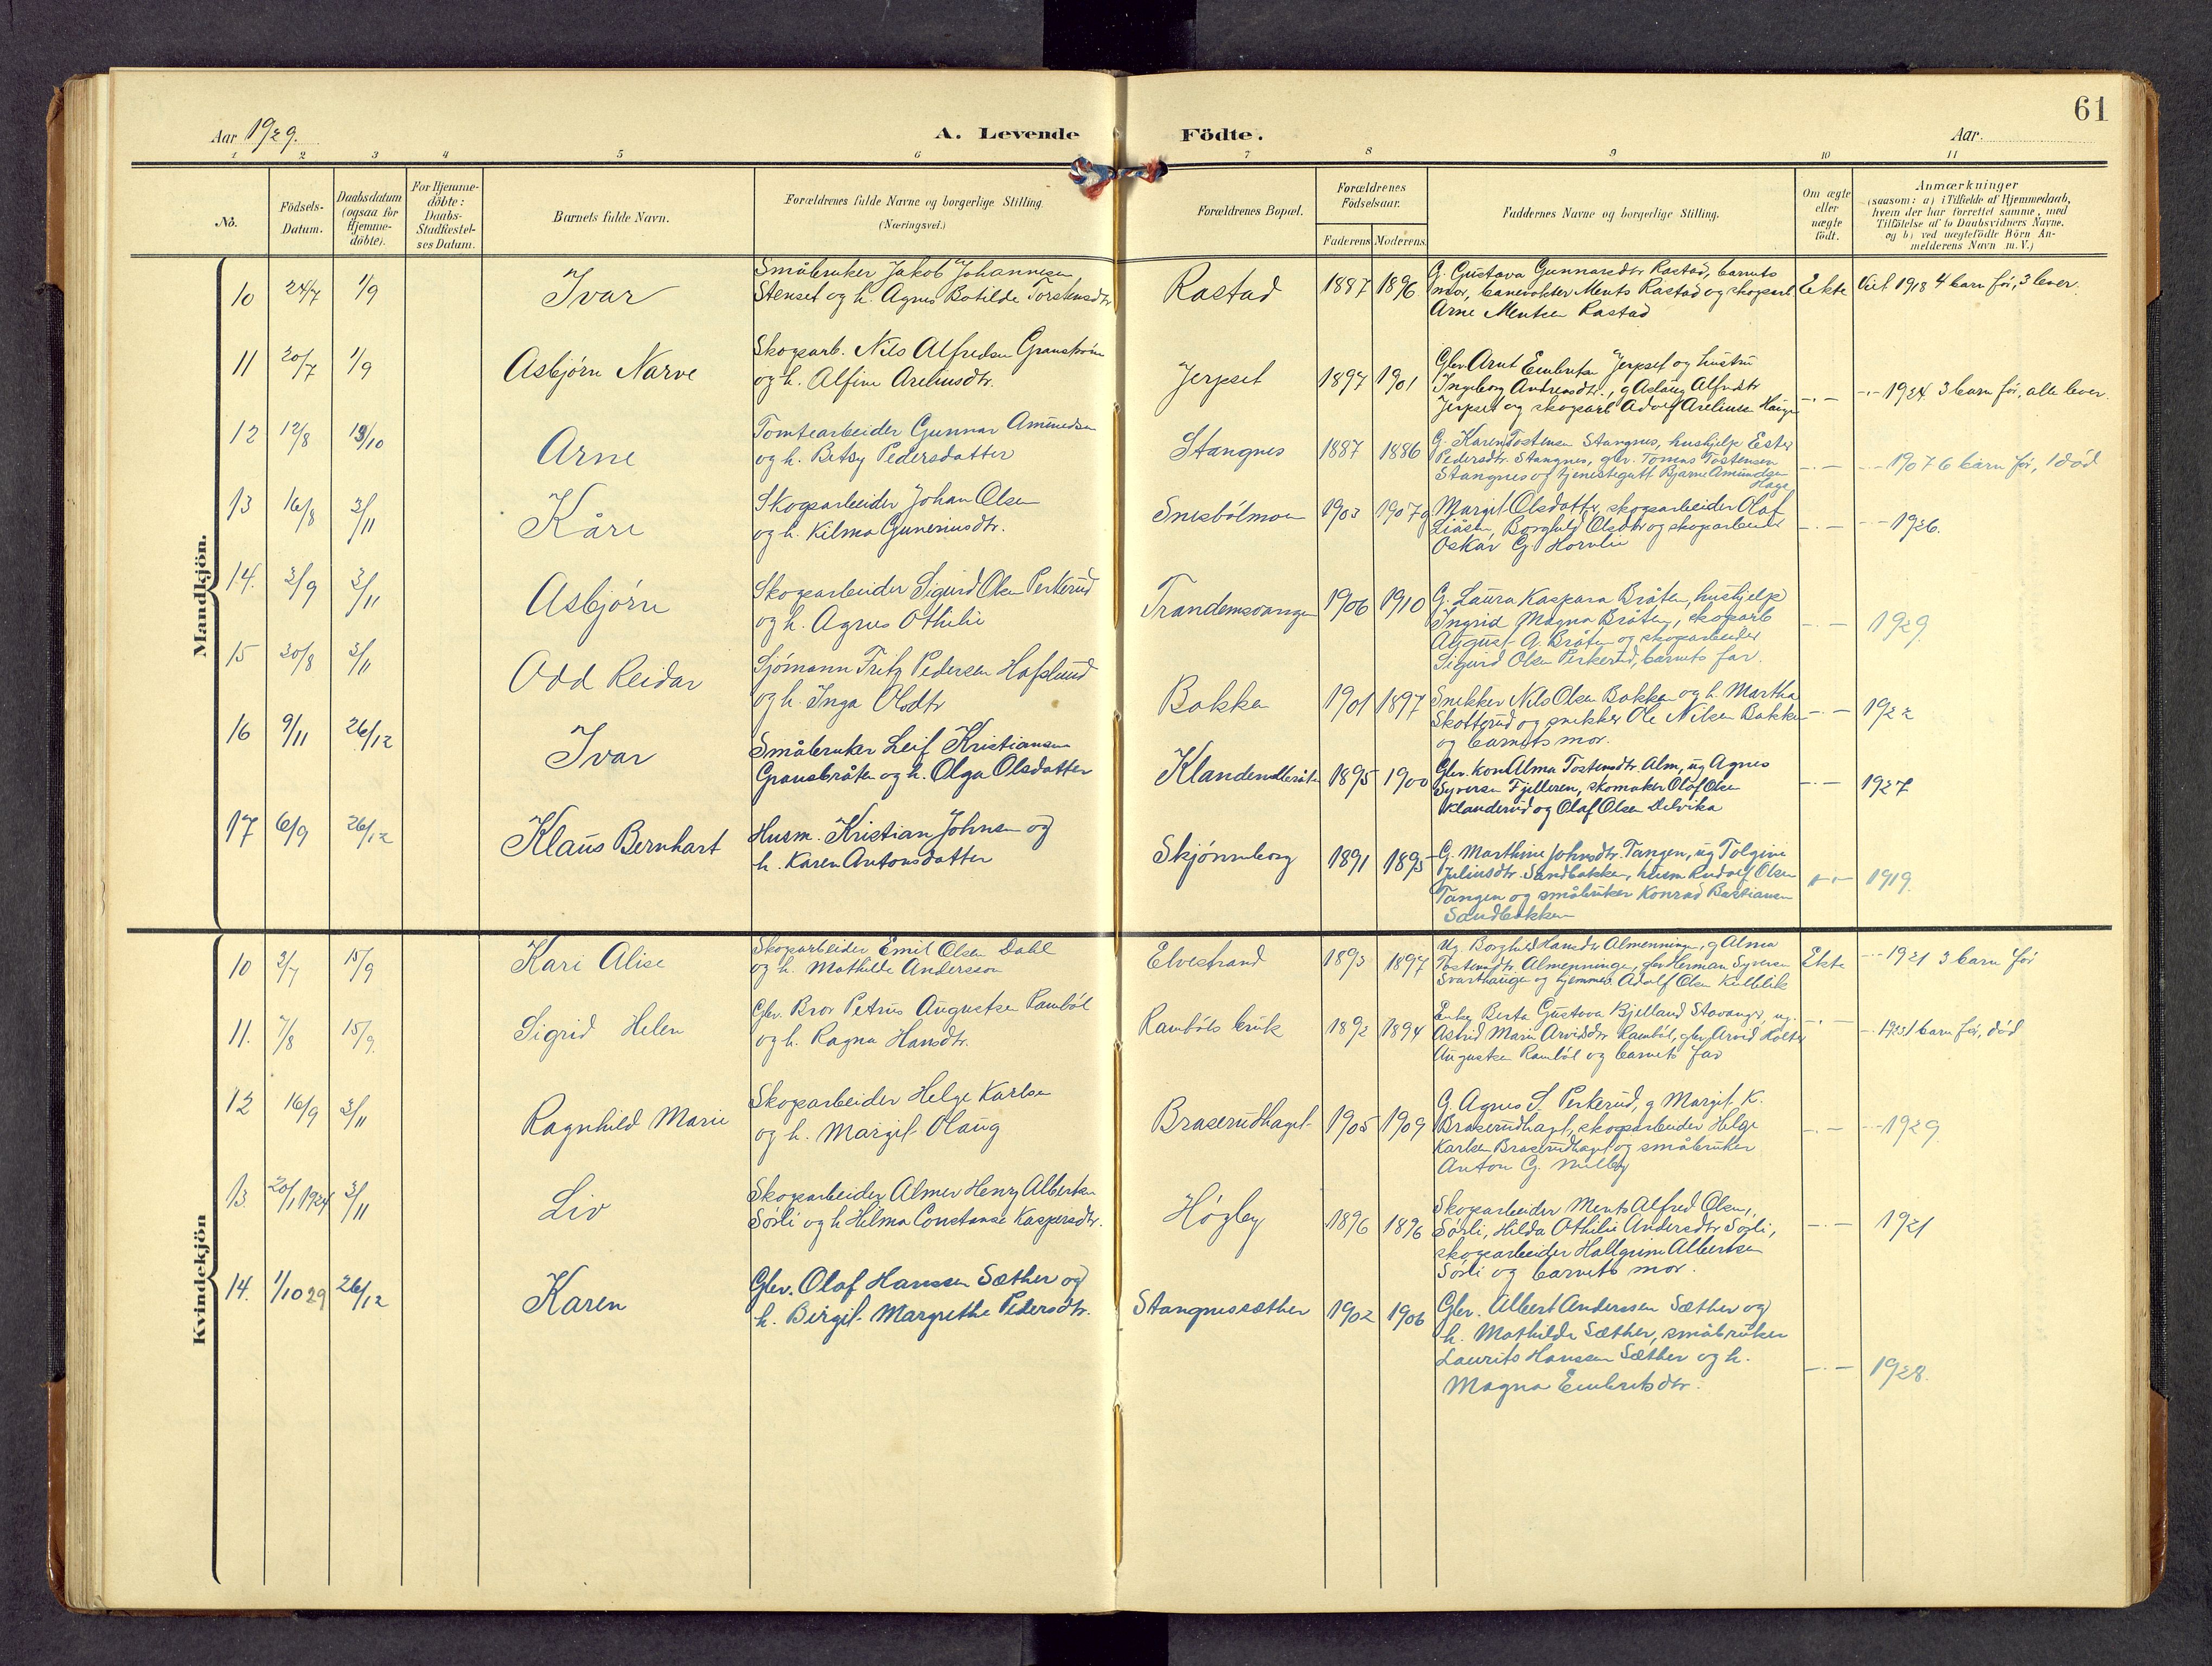 61
Aar 1929.
A. Levende Födte.
Aar
1 2 3 4 5 6 7 8 9 10 11
No.
Födsels-
Datum.
Daabsdatum
(ogsaa for
Hjemme-
döbte).
For Hjemme-
döbte:
Daabs-
Stadfæstel-
ses Datum.
Barnets fulde Navn.
Forældrenes fulde Navne og borgerlige Stilling.
(Næringsvei.)
Forældrenes Bopæl.
Forældrenes
Födselsaar.
Faderens Moderens
Faddernes Navne og borgerlige Stilling.
Om ægte
eller
uægte
födt.
Anmærkninger
(saasom: a) i Tilfælde af Hjemmedaab,
hvem der har forrettet samme, med
Tilföielse af to Daabsvidners Navne.
og b) ved uægtefödte Börn An-
melderens Navn m. V.)
Mandkjön.
10 24/7 1/9 Ivar
Småbruker Jakob Johannesen
Stenset og h. Agnes Botilde Torstensdtr
Rastad 1887 1896
G. Gustava Gunnarsdtr Rastad, barnets
mor, banevokter Ments Rastad og skogsarb
Arne Mentsen Rastad
Ekte Viet 1918 4 barn før, 3 lever.
11 20/7 1/9 Asbjørn Narve
Skogsarb. Nils Alfredsen Granstrøm
og h. Alfine Areliusdtr.
Jerpset 1897 1901
Gbr Arnt Embretsen Jerpset og hustru
Ingeborg Andreasdtr., g Aslaug Alfrdtr
Jerpset og skogsarb Adolf Areliusen Haugen
-.- -.- 1924 3 barn før, alle lever.
12 12/8 13/10 Arne
Tomtearbeider Gunnar Amundsen
og h. Betsy Pedersdatter
Stangnes 1887 1886
G. Karen Tostensen Stangnes, hushjelp Ester
Pedersdtr. Stangnes, gbr. Tomas Tostensen
Stangnes og tjenestegutt Bjarne Amundsen
Hage
-.- -.- 1907 6 barn før, 1 død
13 16/8 3/11 Kåre
Skogsarbeider Johan Olsen
og h. Kilma Guneriusdtr.
Snesbølmoen 1903 1907
g Margit Olsdatter, skogsarbeider Olaf
Liåsen, Borghild Olsdtr og skogsarbeider
Oskar G. Hornlie
-.- -.- 1926.
14. 3/9 3/11 Asbjørn
Skogsarbeider Sigurd Olsen Perkerud
og h. Agnes Othilie
Trandemsvangen 1906 1910
G. Laura Kaspara Bråten, hushjelp
Ingrid Magna Bråten, skogsarb
August A. Bråten og skogsarbeider
Sigurd Olsen Perkerud, barnets far.
-.- 1929.
15 30/8 3/11 Odd Reidar
Sjømann Fritz Pedersen Hafslund
og h. Inga Olsdtr
Bakken 1901 1897
Snekker Nils Olsen Bakken og h. Martha
Skotterud og snekker Ole Nilsen Bakken
og barnets mor.
-.- 1922
16 9/11 26/12 Ivar
Småbruker Leif Kristiansen
Gransbråten og h. Olga Olsdatter
1895 1900
Gbr. kon Alma Tostensdtr. Alm, ug Agnes
Syversen Fjelleren, skomaker Olaf Olsen
Klanderud og Olaf Olsen Delvika
-.- 1927
17 6/9 26/12 Klaus Bernhart
Husm. Kristian Johnsen og
h. Karen Antonsdatter
Skjønneborg 1891 1895
G. Marthine Johnsdtr. Tangen, ug Tolgine
Juliusdtr. Sandbakken, husm Rudolf Olsen
Tangen og småbruker Konrad Bastiansen
Sandbakken
-.- 1919.
Kvindekjön
10 3/7 15/9 Kari Alise
Skogsarbeider Emil Olsen Dahl
og h. Mathilde Andersson
Elvestrand 1893 1897
Ug. Borghild Hansdtr Almenningen, g Alma
Tostensdtr. Almenningen, gbr Herman Syversen
Svarthaugen og hjemmev. Adolf Olsen Kulblik
Ekte -.- 1921 3 barn før
11. 7/8 15/9. Sigrid Helen
Gbr. Bror Petrus Augustsen Rambøl
og h. Ragna Hansdtr.
Rambøls bruk 1892 1894
Enke Berta Gustava Bjelland Stavanger, ug.
Astrid Marie Arvidsdtr Rambøl, gbr Arvid Holter
Augustsen Rambøl og barnets far
-.- 1 barn før, død
12 16/9 3/11 Ragnhild Marie
Skogsarbeider Helge Karlsen
og h. Margit Olaug
Braserudhaget 1905 1909
G. Agnes S. Perkerud, g Margit K.
Braserudhagt, skogsarbeider Helge
Karlsen Braserudhaget og småbruker
Anton G. Melby
-.- -.- 1929.
13. 20/1 1924 3/11 Liv
Skogsarbeider Almer Henry Albertsen
Sørli og h Hilma Constanse Kaspersdtr.
Høgby 1896 1896
Skogsarbeider Ments Alfred Olsen,
Sørli, Hilda Othilie Andersdtr Sørli,
skogsarbeider Hallgrim Albertsen
Sørli og barnets mor.
-.- 1921
14. 1/10 29 26/12 Karen
Gbr. Olaf Hanssen Sæther og
h. Birgit Margrethe Pedersdtr.
Stangnessæther 1902 1906
Gbr. Albert Anderssen Sæther og
h. Mathilde Sæther, småbruker
Laurits Hanssen Sæther og h.
Magna Embretsdtr.
-.- 1928.